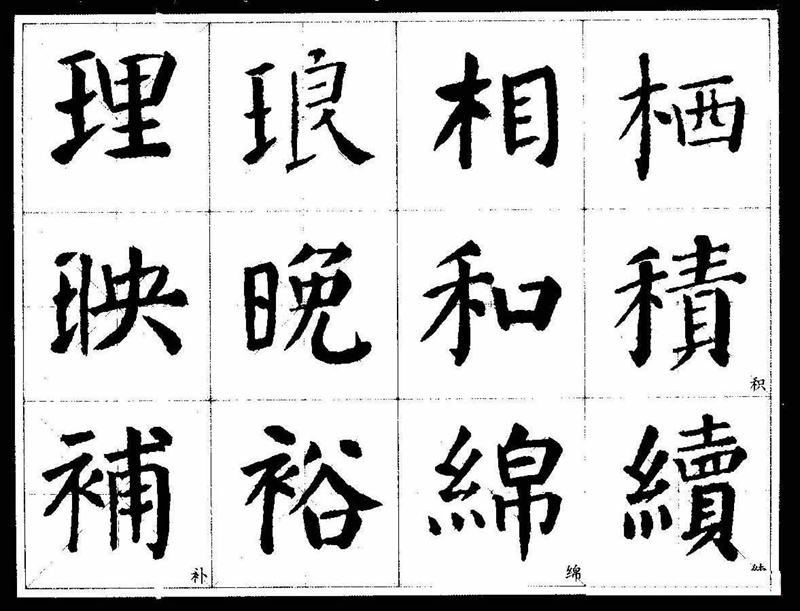 理 琅 相 栖
映 晚 和 積
积
補 裕 綿 續
补 绵